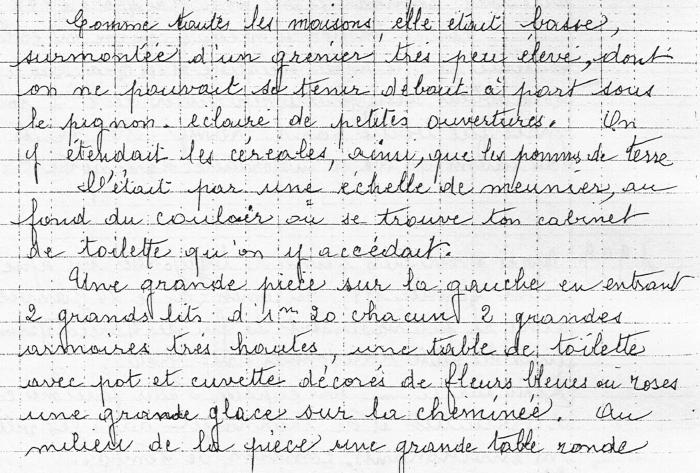 Comme toutes les maisons, elle était basse,
surmontée d'un grenier très peu élevé, dont
on ne pouvait se tenir debout à part sous
le pignon. eclaire de petites ouvertures. On
y étendait les céréales, ainsi, que les pommes de terre
C'était par une échelle de meunier, au
fond du couloir où se trouve ton cabinet
de toilette qu'on y accédait.
Une grande pièce sur la gauche en entrant
2 grands lits d 1m 20 chacun 2 grandes
armoires très hautes, une table de toilette
avec pot et cuvette décorés de fleurs bleues ou roses
une grande glace sur la cheminée. Au
milieu de la pièce une grande table ronde